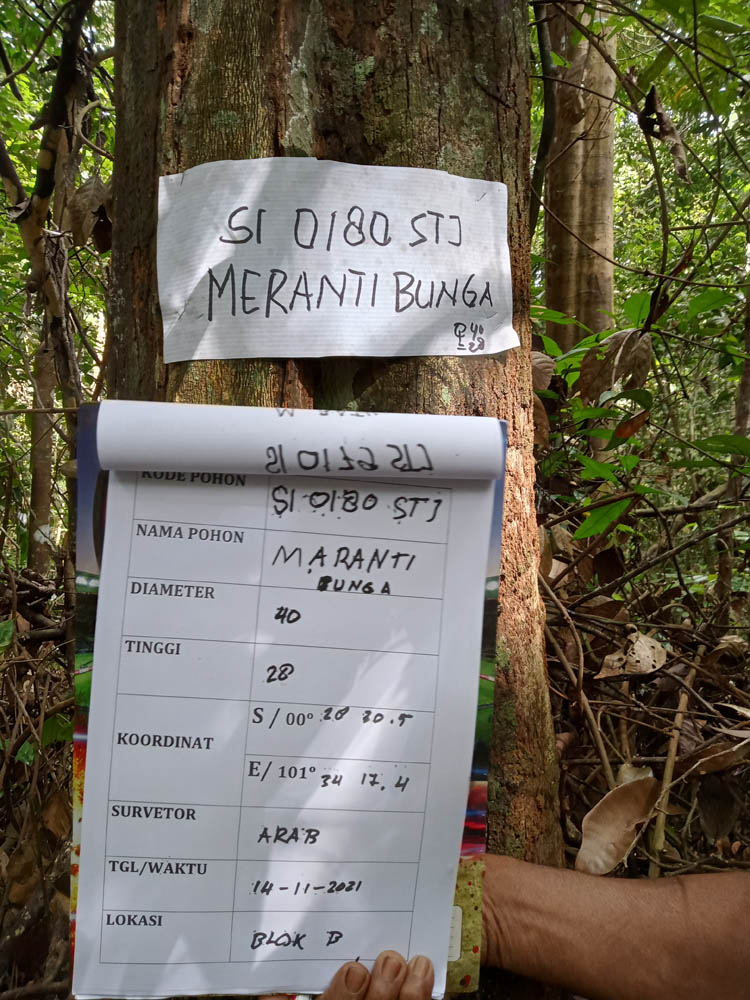 SI 0180 STJ
MERANTI BUNGA
40
28
SI 0179 STJ
KODE POHON SI 0180 STJ
NAMA POHON MARANTI BUNGA
DIAMETER 40
TINGGI 28
KOORDINAT S / 00° 28 30.5
E/ 101° 34 17.4
SURVETOR ARAB
TGL/WAKTU 14-11-2021
LOKASI BLOK B